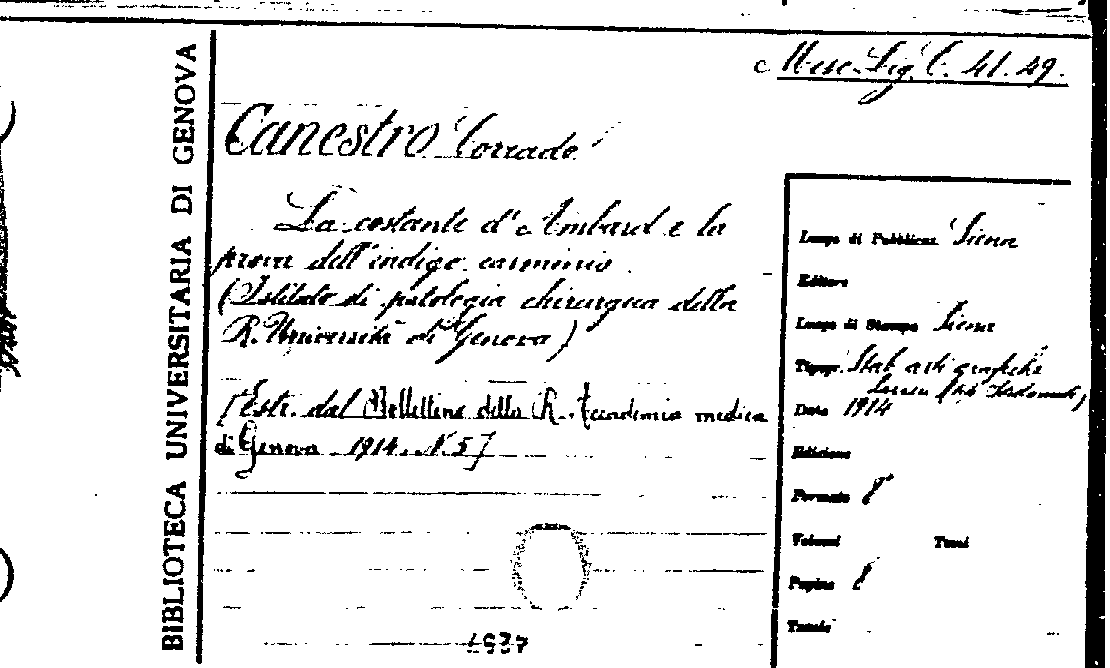 BIBLIOTECA UNIVERSITARIA DI GENOVA
Misc. Lig. C. 41. 29.
Canestro Corrado
La costante d'Ambard e la
prova dell'indigo carminio
(Istituto di patologia chirurgica della
R. Università di Genova)
[Estr. dal Bollettino della R. Accademia medica
di Genova 1914. N. 5]
Luogo di Pubblicaz. Siena
Editore
Luogo di Stampa Siena
Tipogr. Stab. arti grafiche
Data 1914
Edizione
Formato 8°
Volumi Tomi
Pagine 8
Tavole